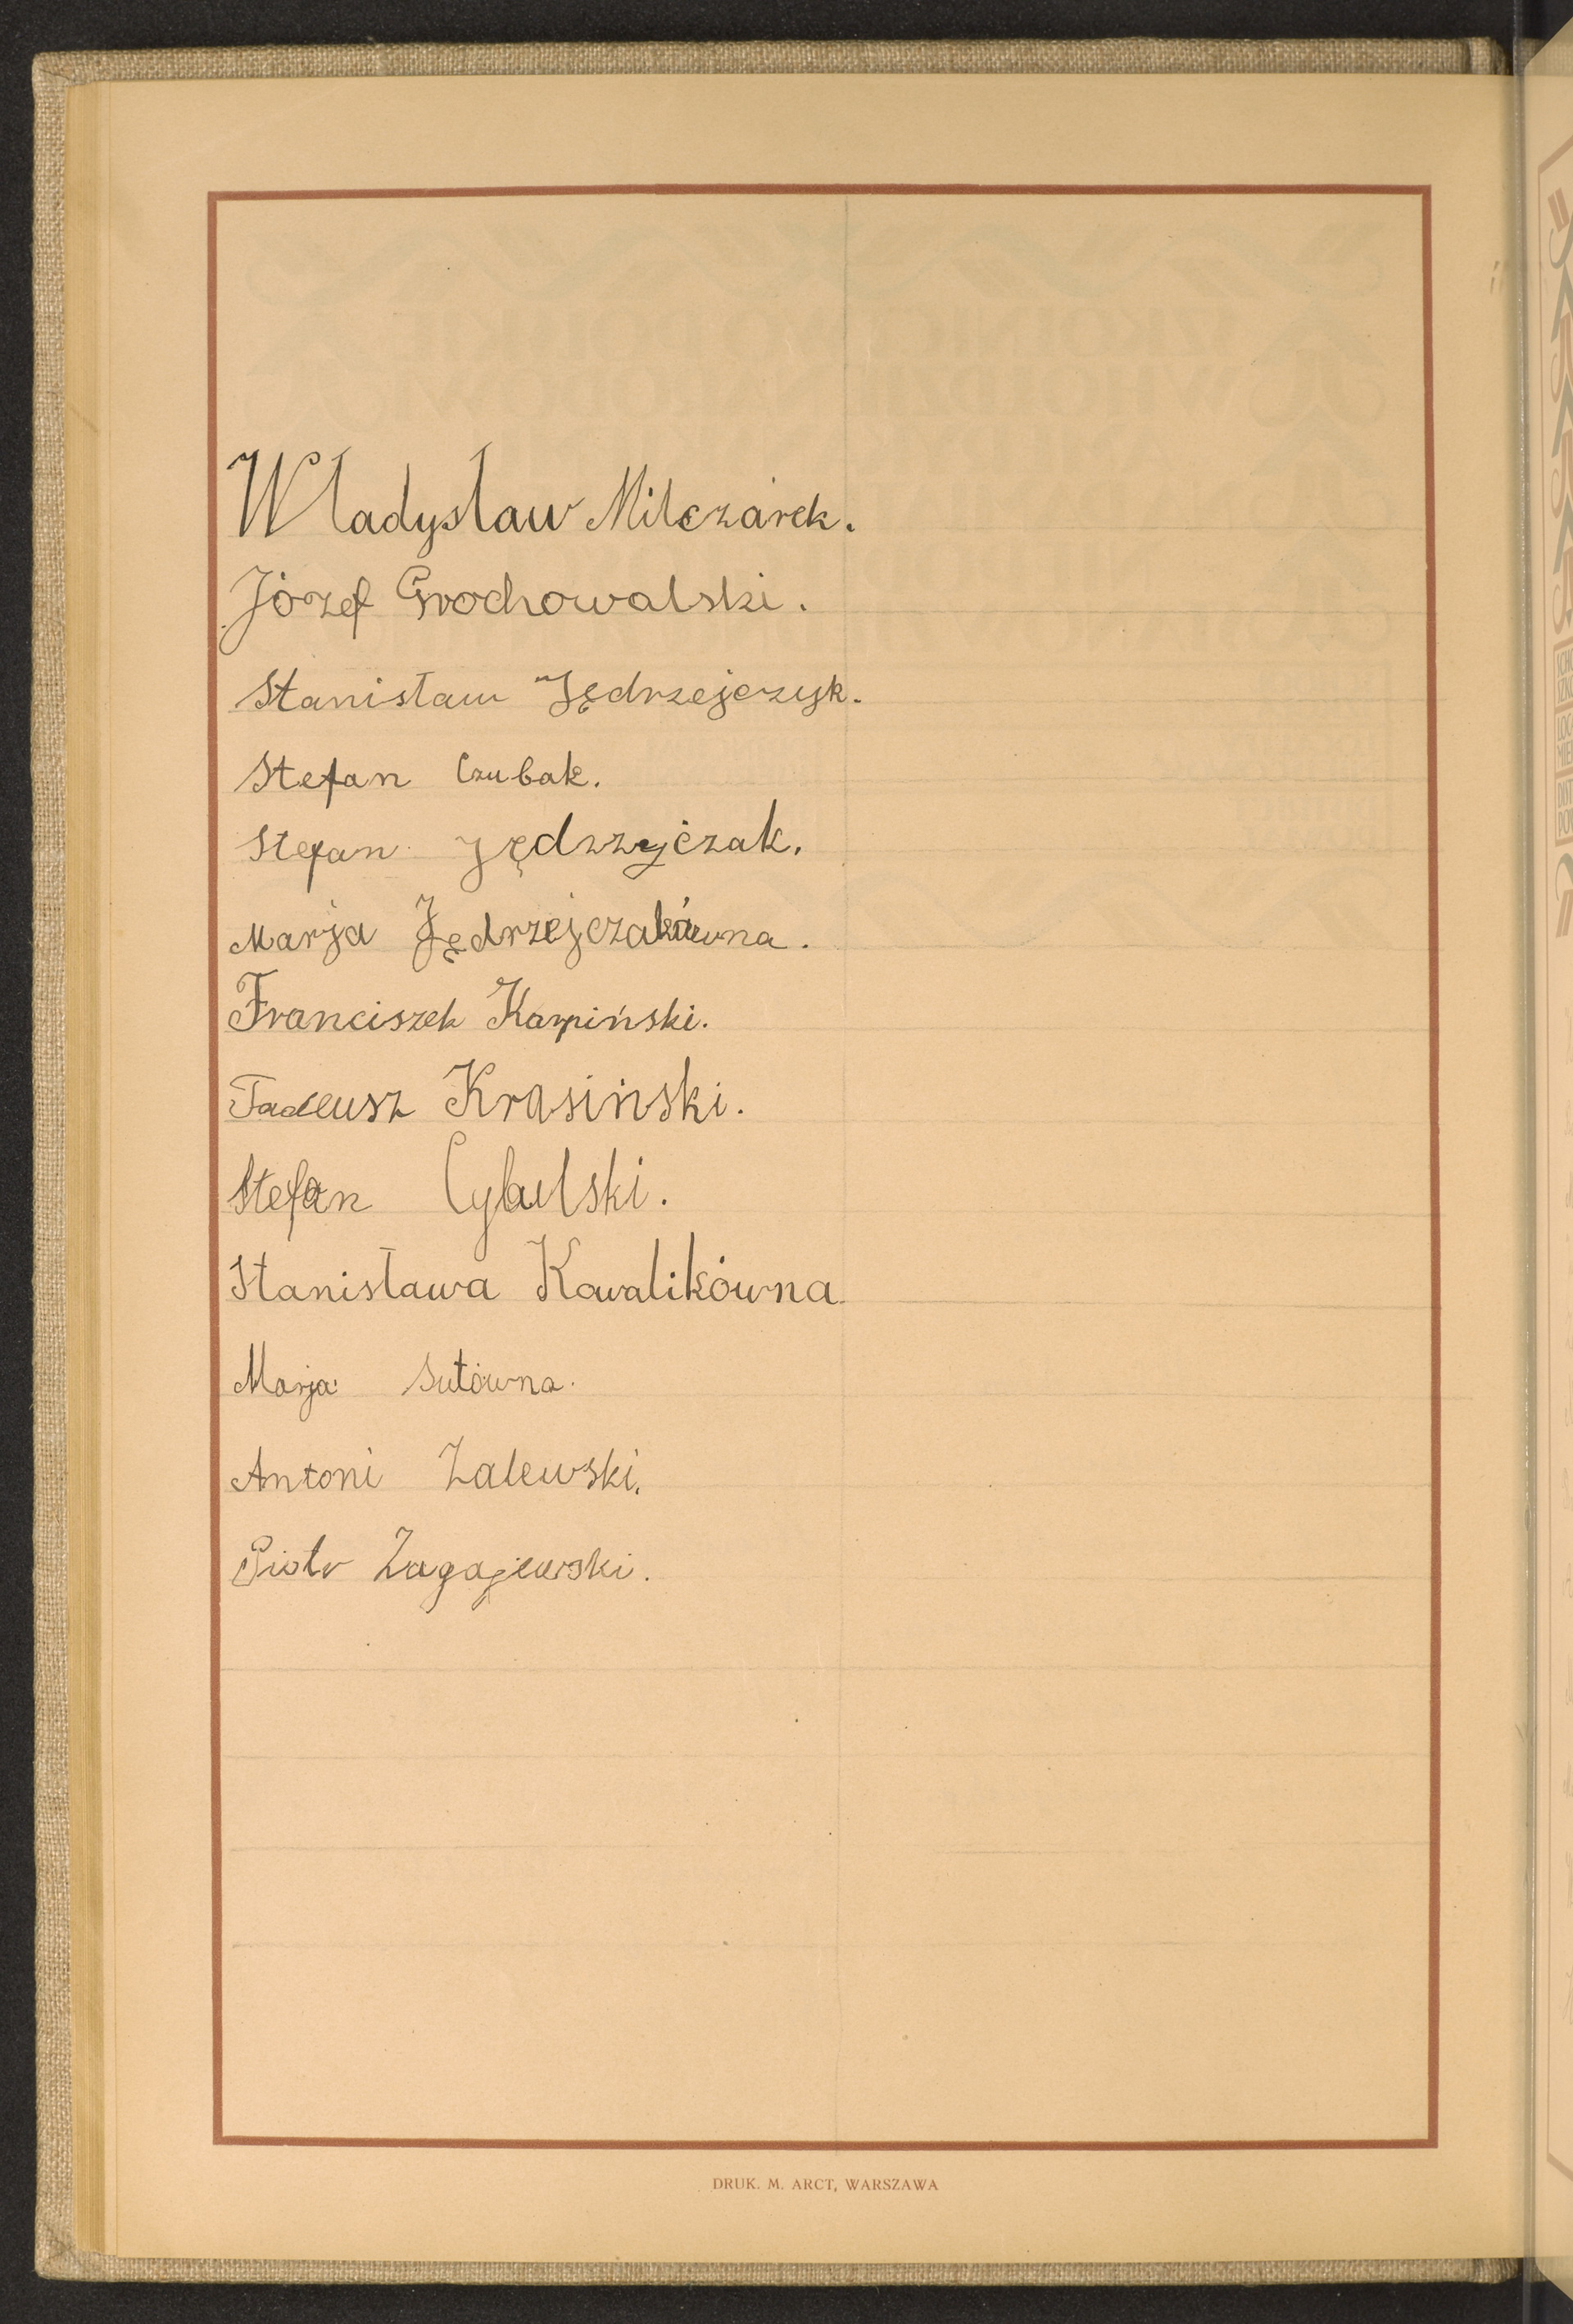 Władysław Milczarek.
Józef Grochowalski.
Stanisław Jędrzejczyk.
Stefan Czubak.
Stefan
Marja Jędrzejczakówna.
Franciszek Karpiński.
Tadeusz Krasiński.
Stefan Cybulski.
Stanisława Kowalikówna
Marja Sutówna.
Antoni Zalewski.
Piotr Zagajewski.
DRUK. M. ARCT, WARSZAWA